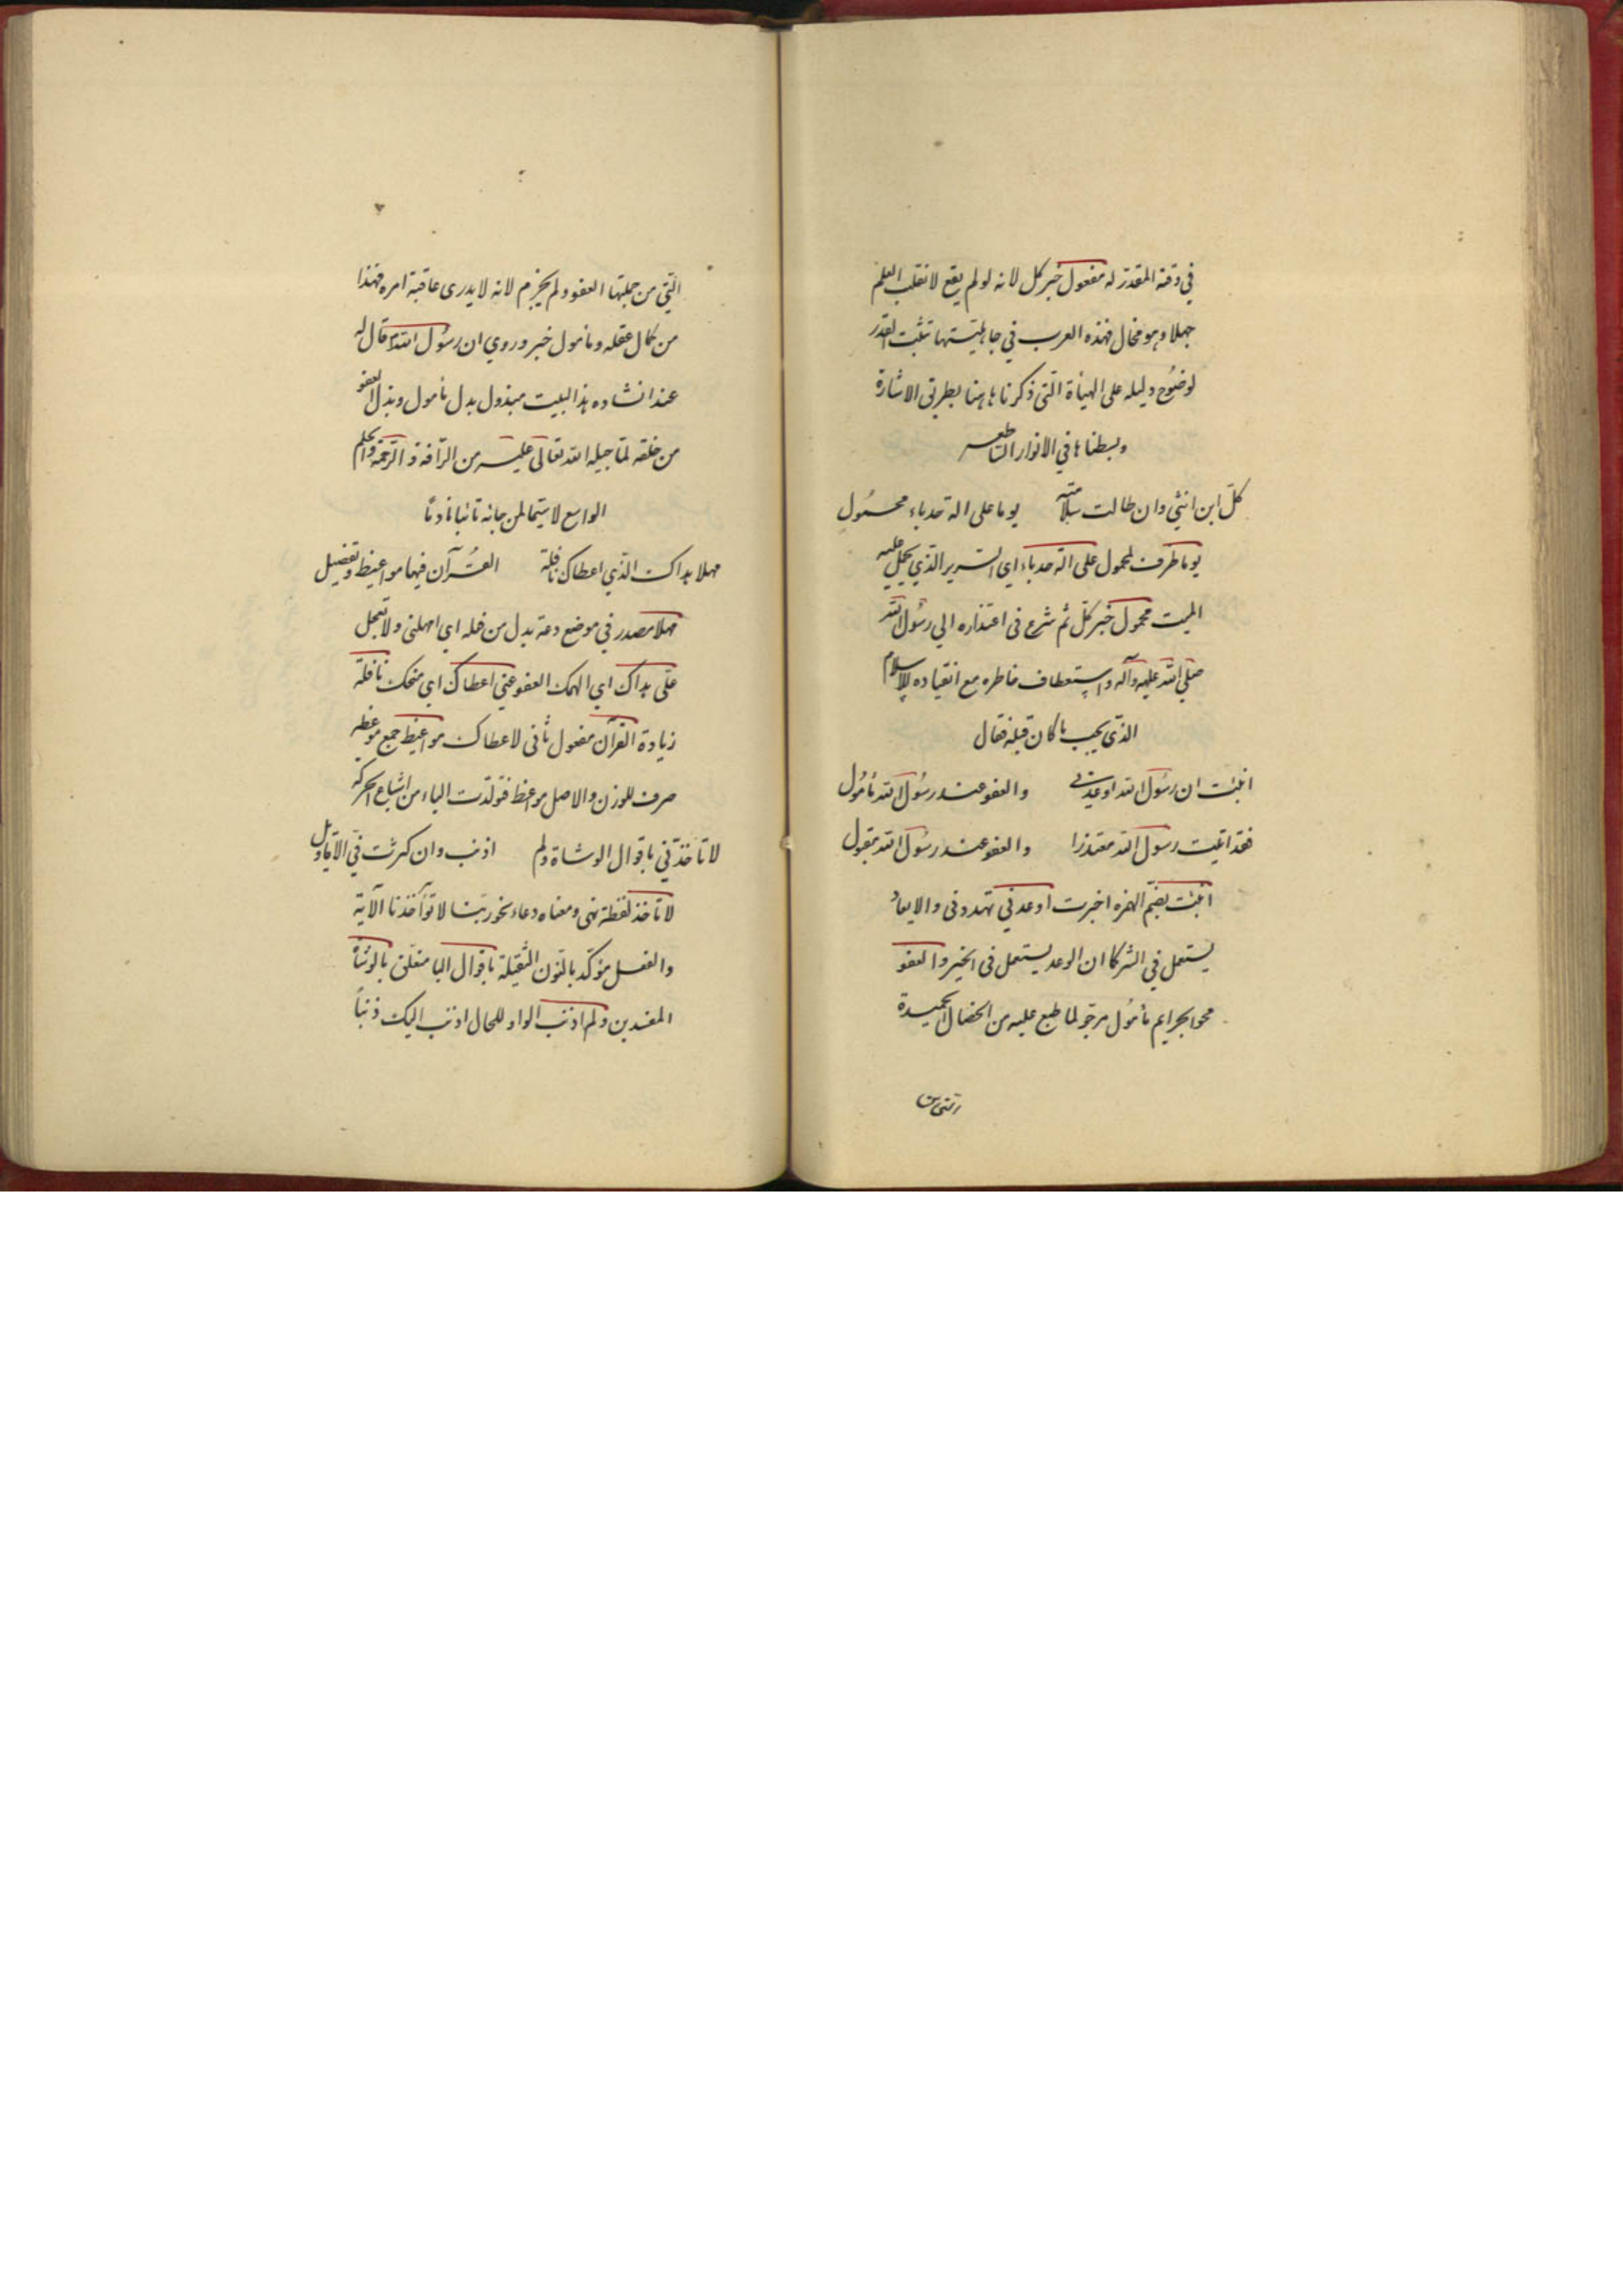 في وقته المقدر له مفعول خبر كل لانه لو لم يقع لانقلب العلم
جهلا وهو محال فهذه العرب في جاهليتها تثبت القدر
لوضوح دليله على الهيأة التي ذكرناها هنا بطريق الاشارة
وبسطناها في الانوار الساطعه
كل ابن انثي وان طالت سلامته يوما على الة حدباء محمول
يوما ظرف لمحمول على الة حدباء اي السرير الذي يحمل عليه
الميت محمول خبر كل ثم شرع في اعتذاره الي رسول الله
صلي الله عليه وآله واستعطاف خاطره مع انقياده للاسلام
الذي يجب ما كان قبله فقال
انبئت ان رسول الله اوعدني والعفو عند رسول الله مأمول
فقد اتيت رسول الله معتذرا والعفو عند رسول الله مقبول
انبئت بضم الهمزه اخبرت اوعدني تهددني والايعاد
يستعمل في الشر كما ان الوعد يستعمل في الخير والعفو
محو الجرايم مأمول مرجو لما طبع عليه من الخصال الحميدة
التي من جملتها العفو ولم يجزم لانه لا يدري عاقبة امره فهذا
من كمال عقله ومأمول خبر وروي ان رسول الله قال له
عند انشاده هذا البيت مبذول بدل مأمول وبذل العفو
من خلقه لما جبله الله تعالى عليه من الرأفة والرحمة والحلم
الواسع لا سيما لمن جاءنه تائبا نادما
مهلا هداك الذي اعطاك نافلة القرآن فيها مواعيظ وتفصيل
مهلا مصدر في موضع دعة بدل من فعله اي امهلني ولا تعجل
علي هداك اي الهمك العفو عني اعطاك اي منحك نافلة
زيادة القرآن مفعول ثاني لاعطاك مواعيظ جمع موعظه
صرف للوزن والاصل مواعظ فتولدت الياء من اشباع الحركه
لا تاخذني باقوال الوشاة ولم اذنب وان كثرت في الاقاويل
لا تاخذ لفظة نهي ومعناه دعاء نحو ربنا لا تؤآخذنا الآية
والفعل مؤكد بالنون الثقيلة باقوال البا متعلق بالوشاة
المفسدين ولم اذنب الواو للحال اذنب اليك ذنباً